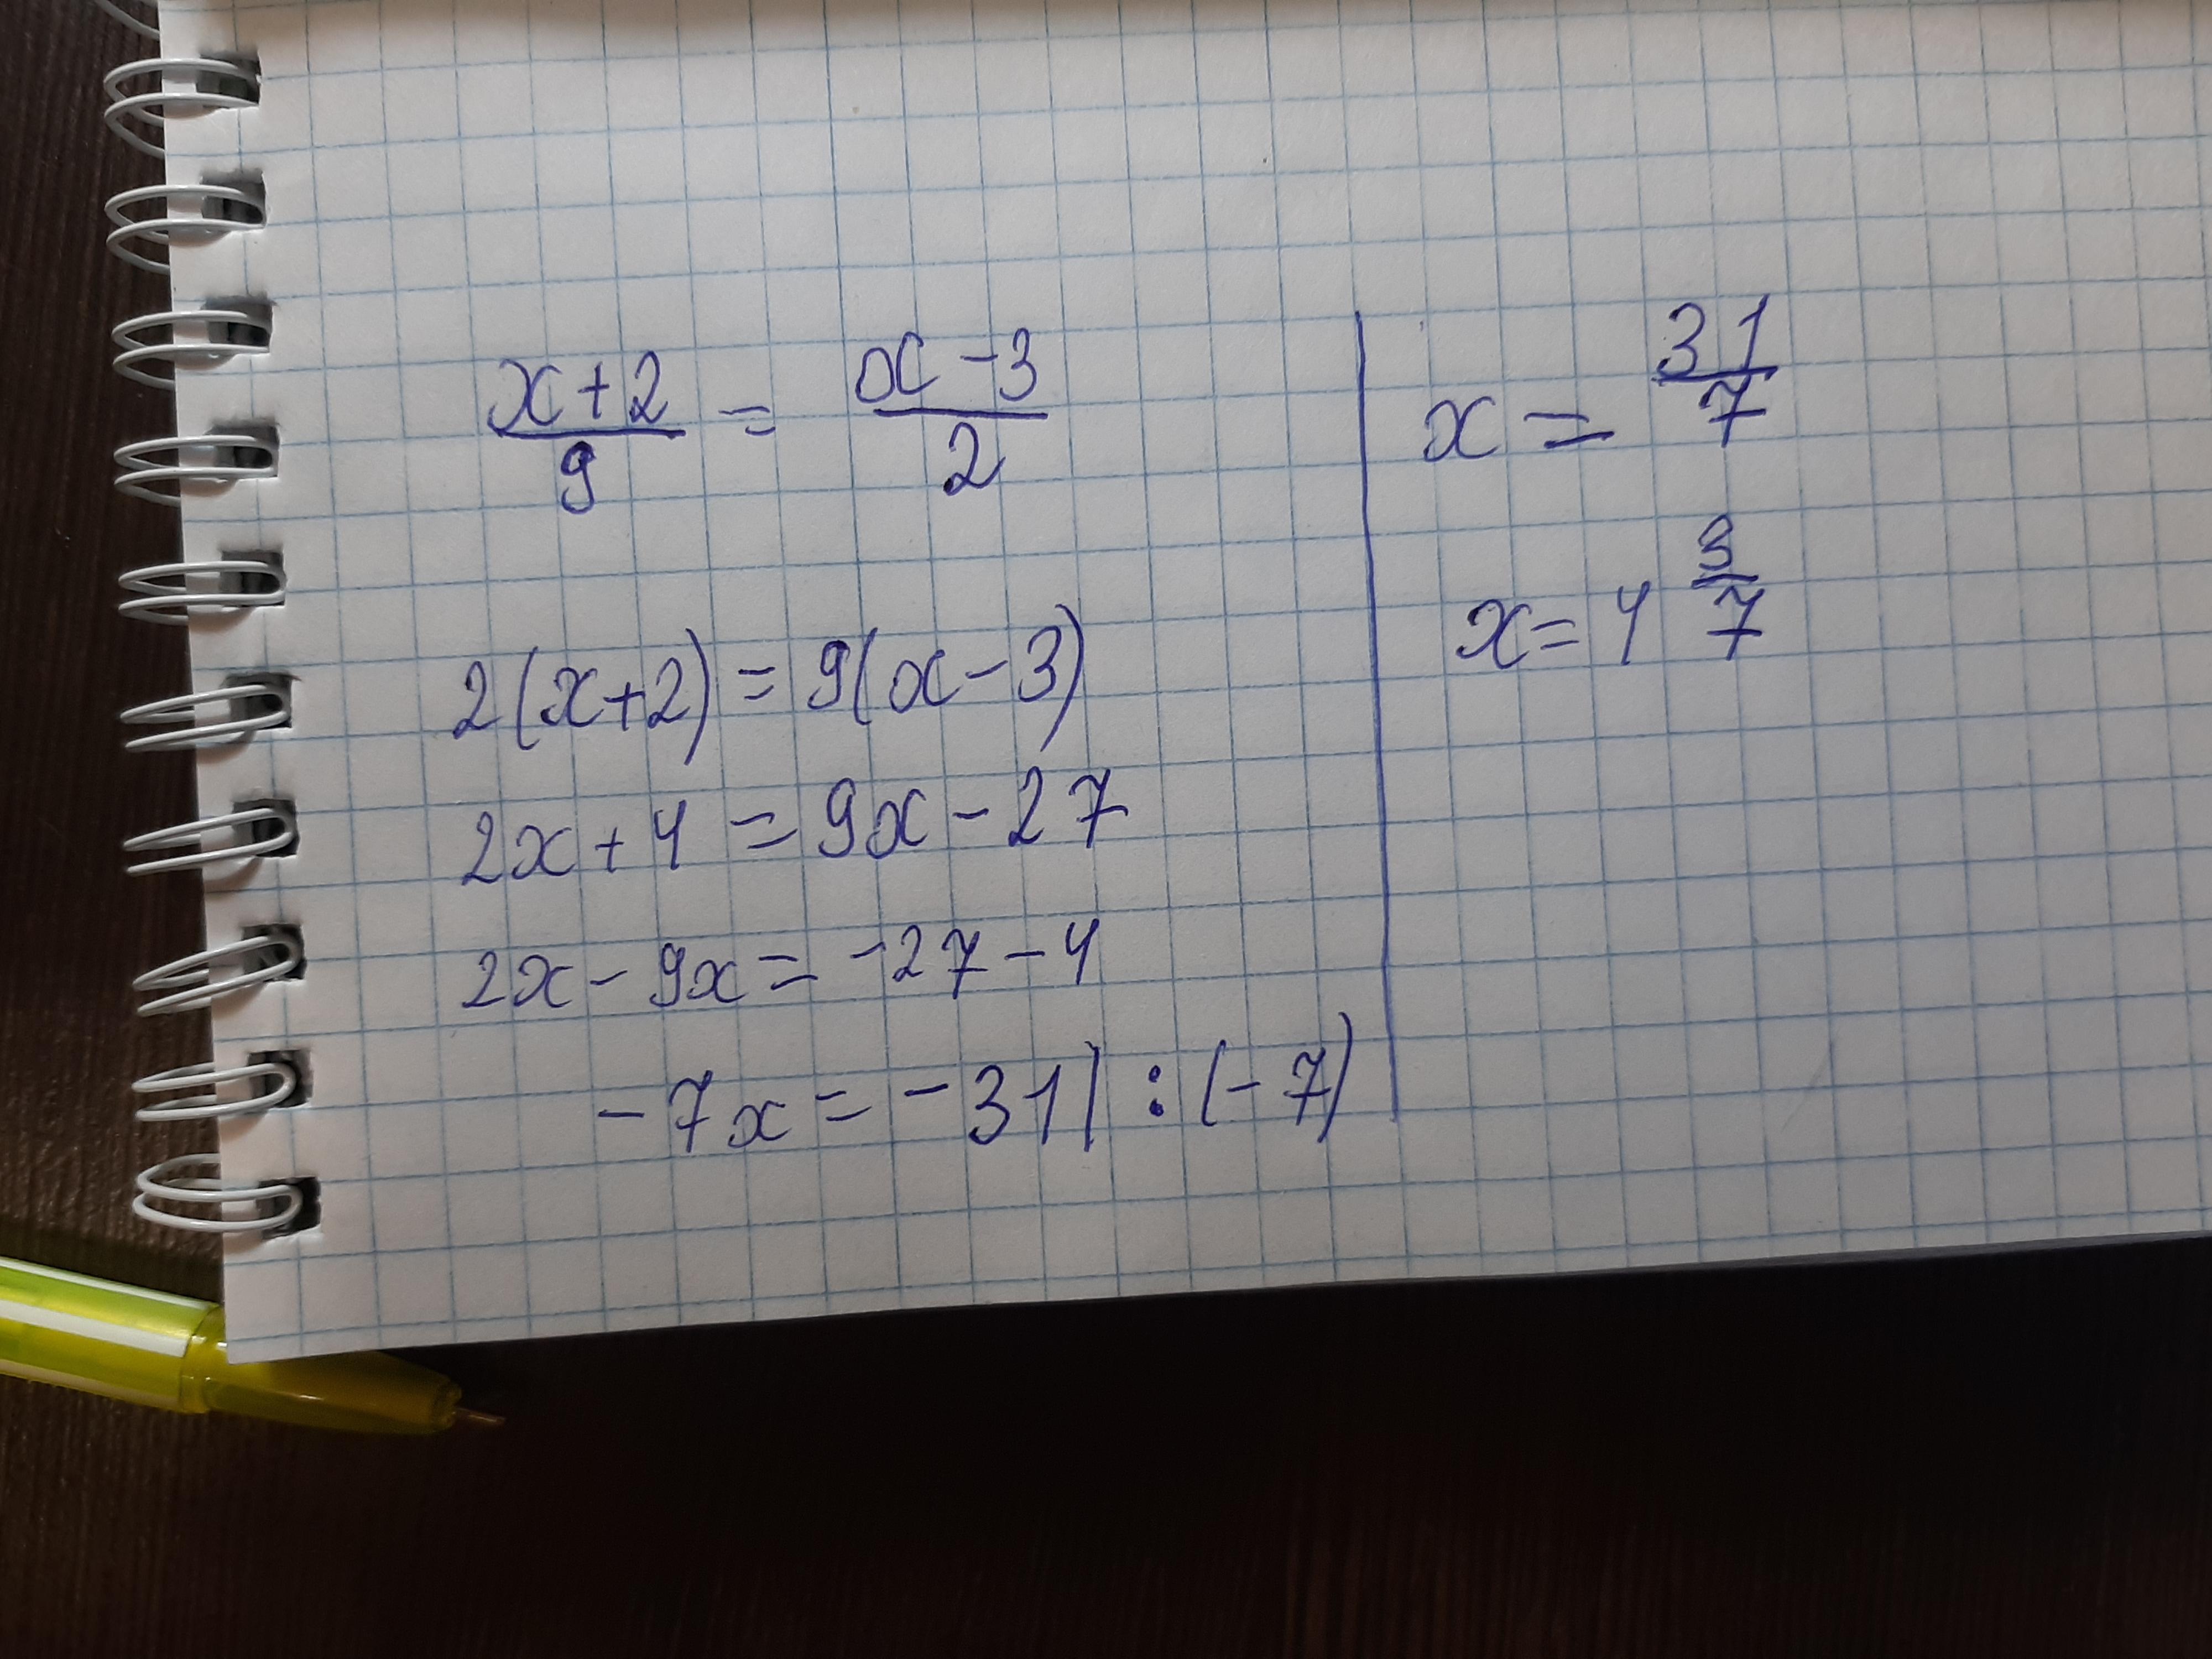 x+2/9 = x-3/2
2(x+2) = 9(x-3)
2x+4 = 9x-27
2x-9x = -27-4
-7x = -31 | : (-7)
x = 31/7
x = 4 3/7